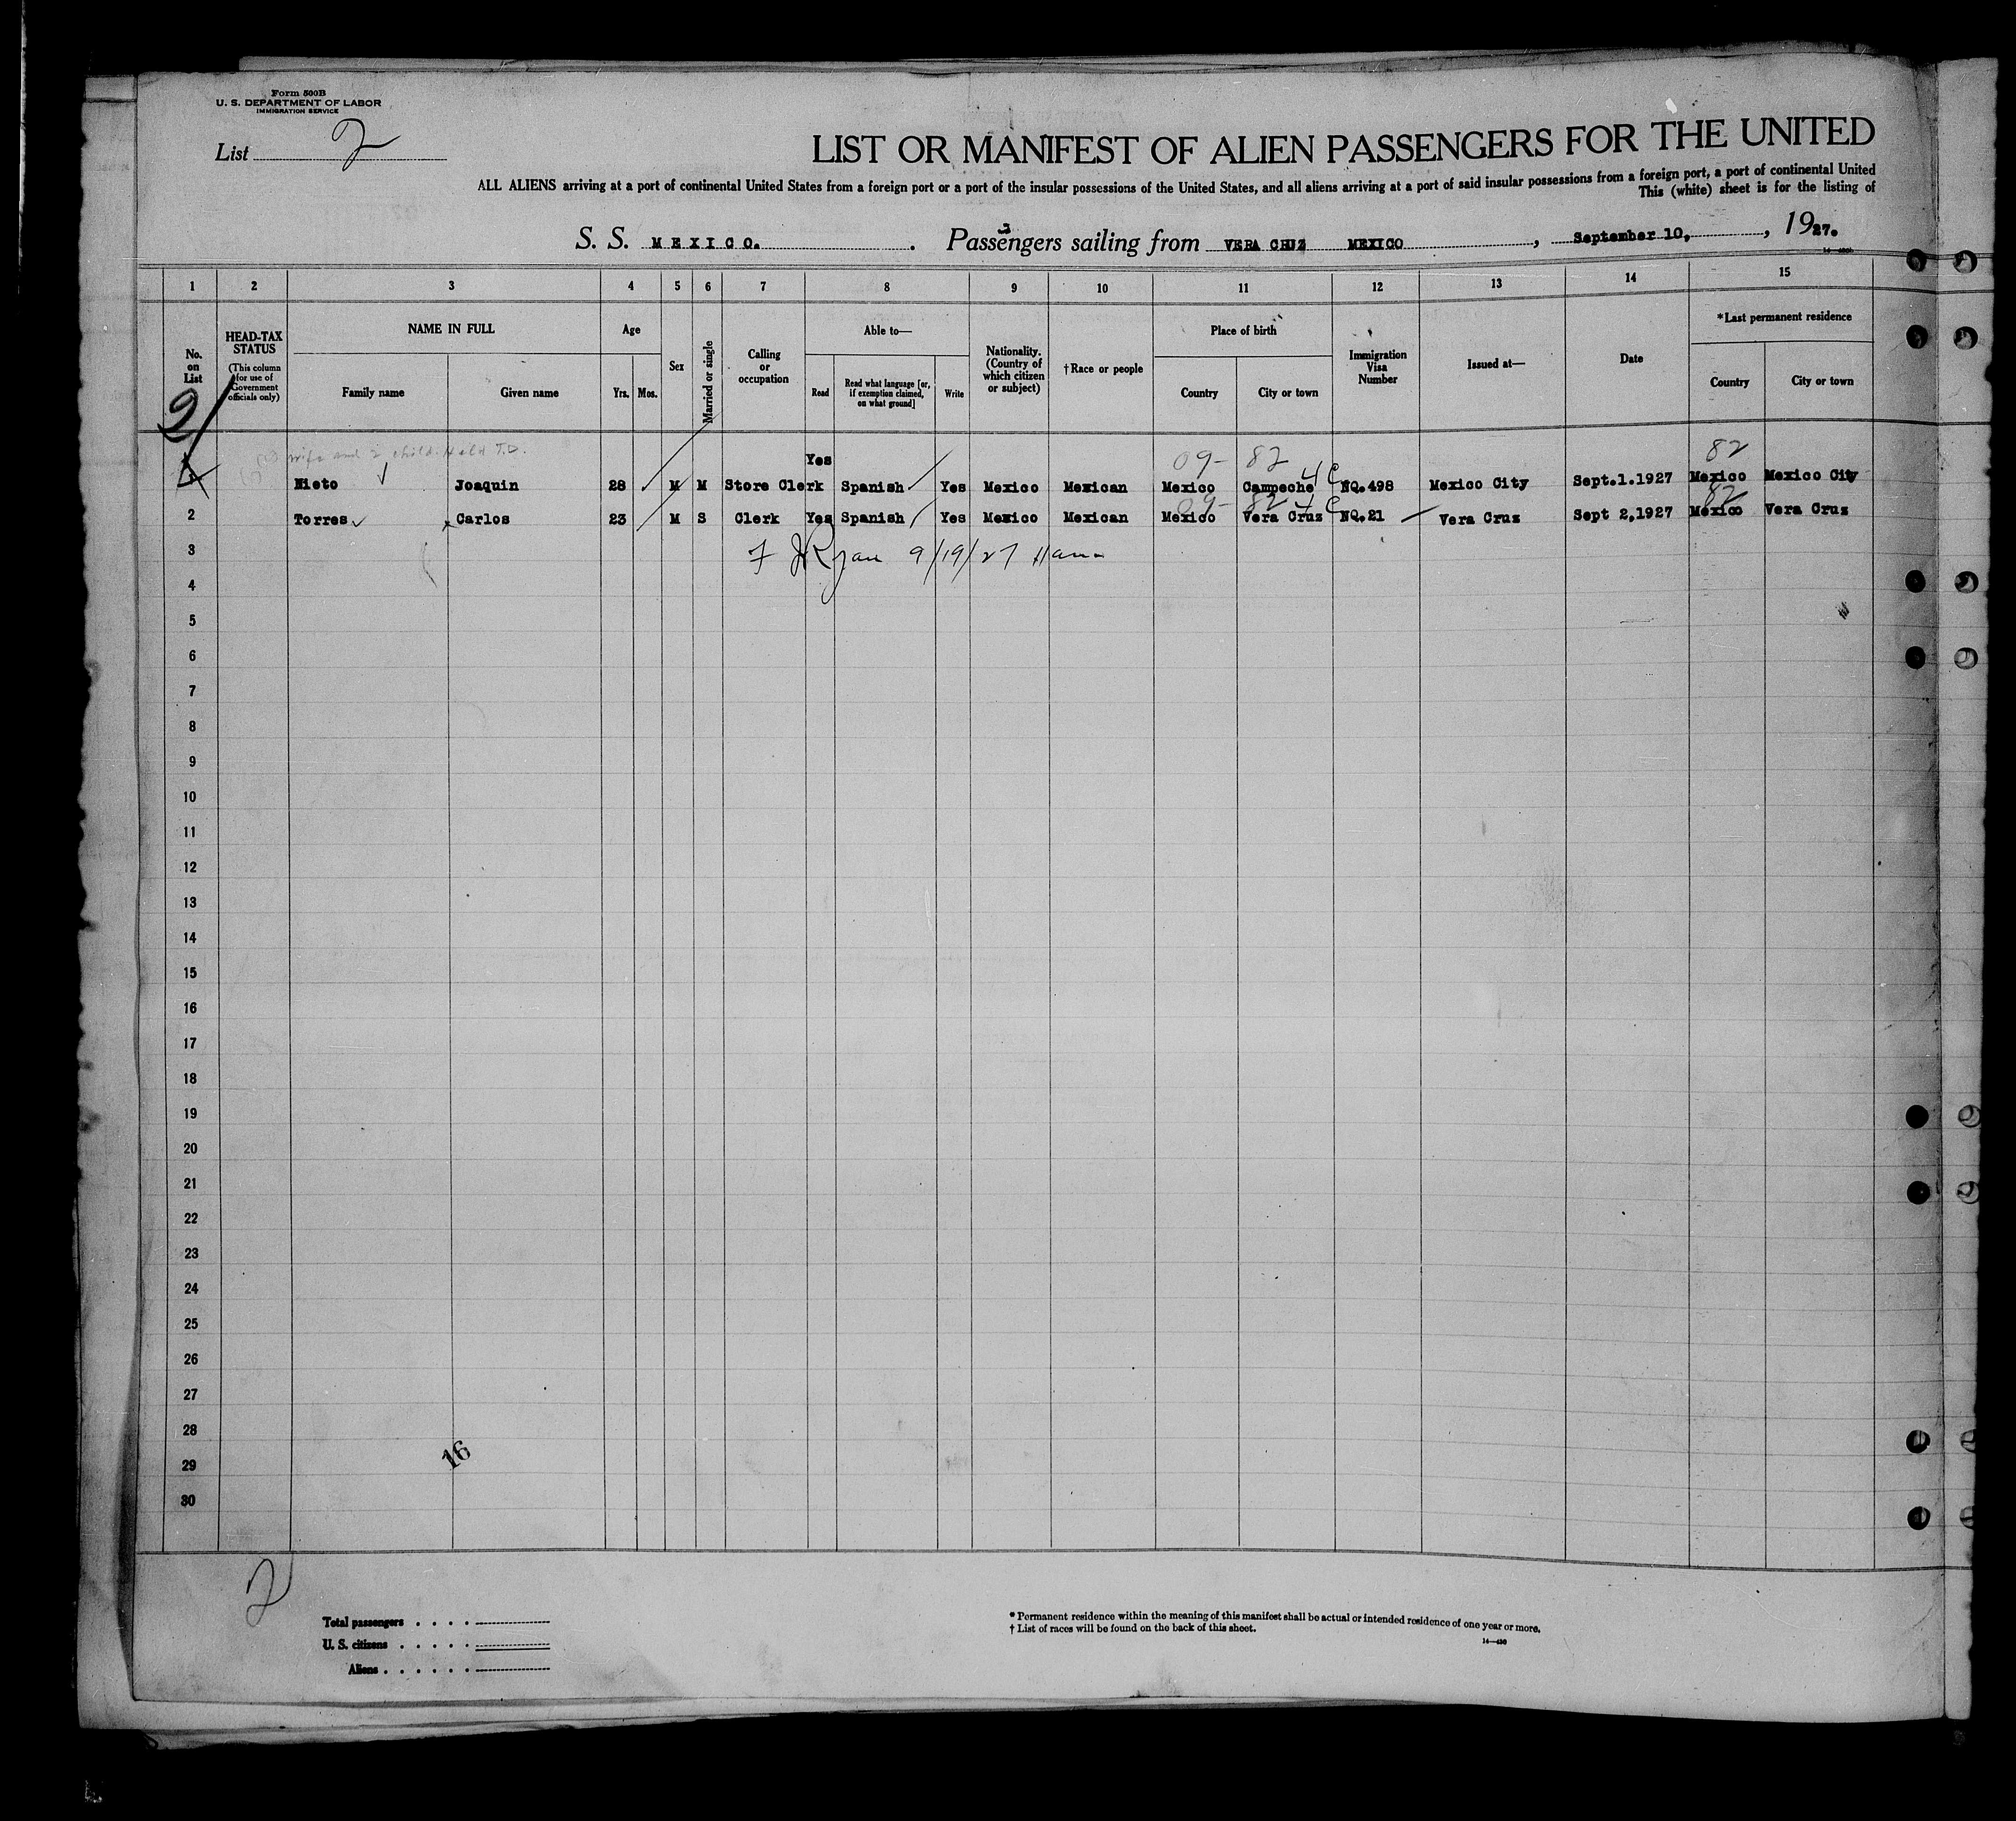 Form 500B
U. S. DEPARTMENT OF LABOR
IMMIGRATION SERVICE
List 2
LIST OR MANIFEST OF ALIEN PASSENGERS FOR THE UNITED
ALL ALIENS arriving at a port of continental United States from a foreign port or a port of the insular possessions of the United States, and all aliens arriving at a port of said insular possessions from a foreign port, a port of continental United
This (white) sheet is for the listing of
S. S. MEXICO. Passengers sailing from VERA CRUZ MEXICO, September 10, 1927.
1 2 3 4 5 6 7 8 9 10 11 12 13 14 15
No. on List
HEAD-TAX STATUS (This column for use of Government officials only)
NAME IN FULL Family name Given name
Age Yrs. Mos.
Sex
Married or single
Calling or occupation
Able to— Read Read what language [or, if exemption claimed, on what ground] Write
Nationality. (Country of which citizen or subject)
†Race or people
Place of birth Country City or town
Immigration Visa Number
Issued at—
Date
*Last permanent residence Country City or town
wife and 2 child. Held T.D.
09- 82 82
Nieto Joaquin 28 M M Store Clerk Yes Spanish Yes Mexico Mexican Mexico Campeche NQ.498 Mexico City Sept.1.1927 Mexico Mexico City
09- 82 82
2 Torres Carlos 23 M S Clerk Yes Spanish Yes Mexico Mexican Mexico Vera Cruz NQ.21 Vera Cruz Sept 2,1927 Mexico Vera Cruz
3 Ryan 9/19/27
4
5
6
7
8
9
10
11
12
13
14
15
16
17
18
19
20
21
22
23
24
25
26
27
28
16
29
30
2
Total passengers
U. S. citizens
Aliens
* Permanent residence within the meaning of this manifest shall be actual or intended residence of one year or more.
† List of races will be found on the back of this sheet.